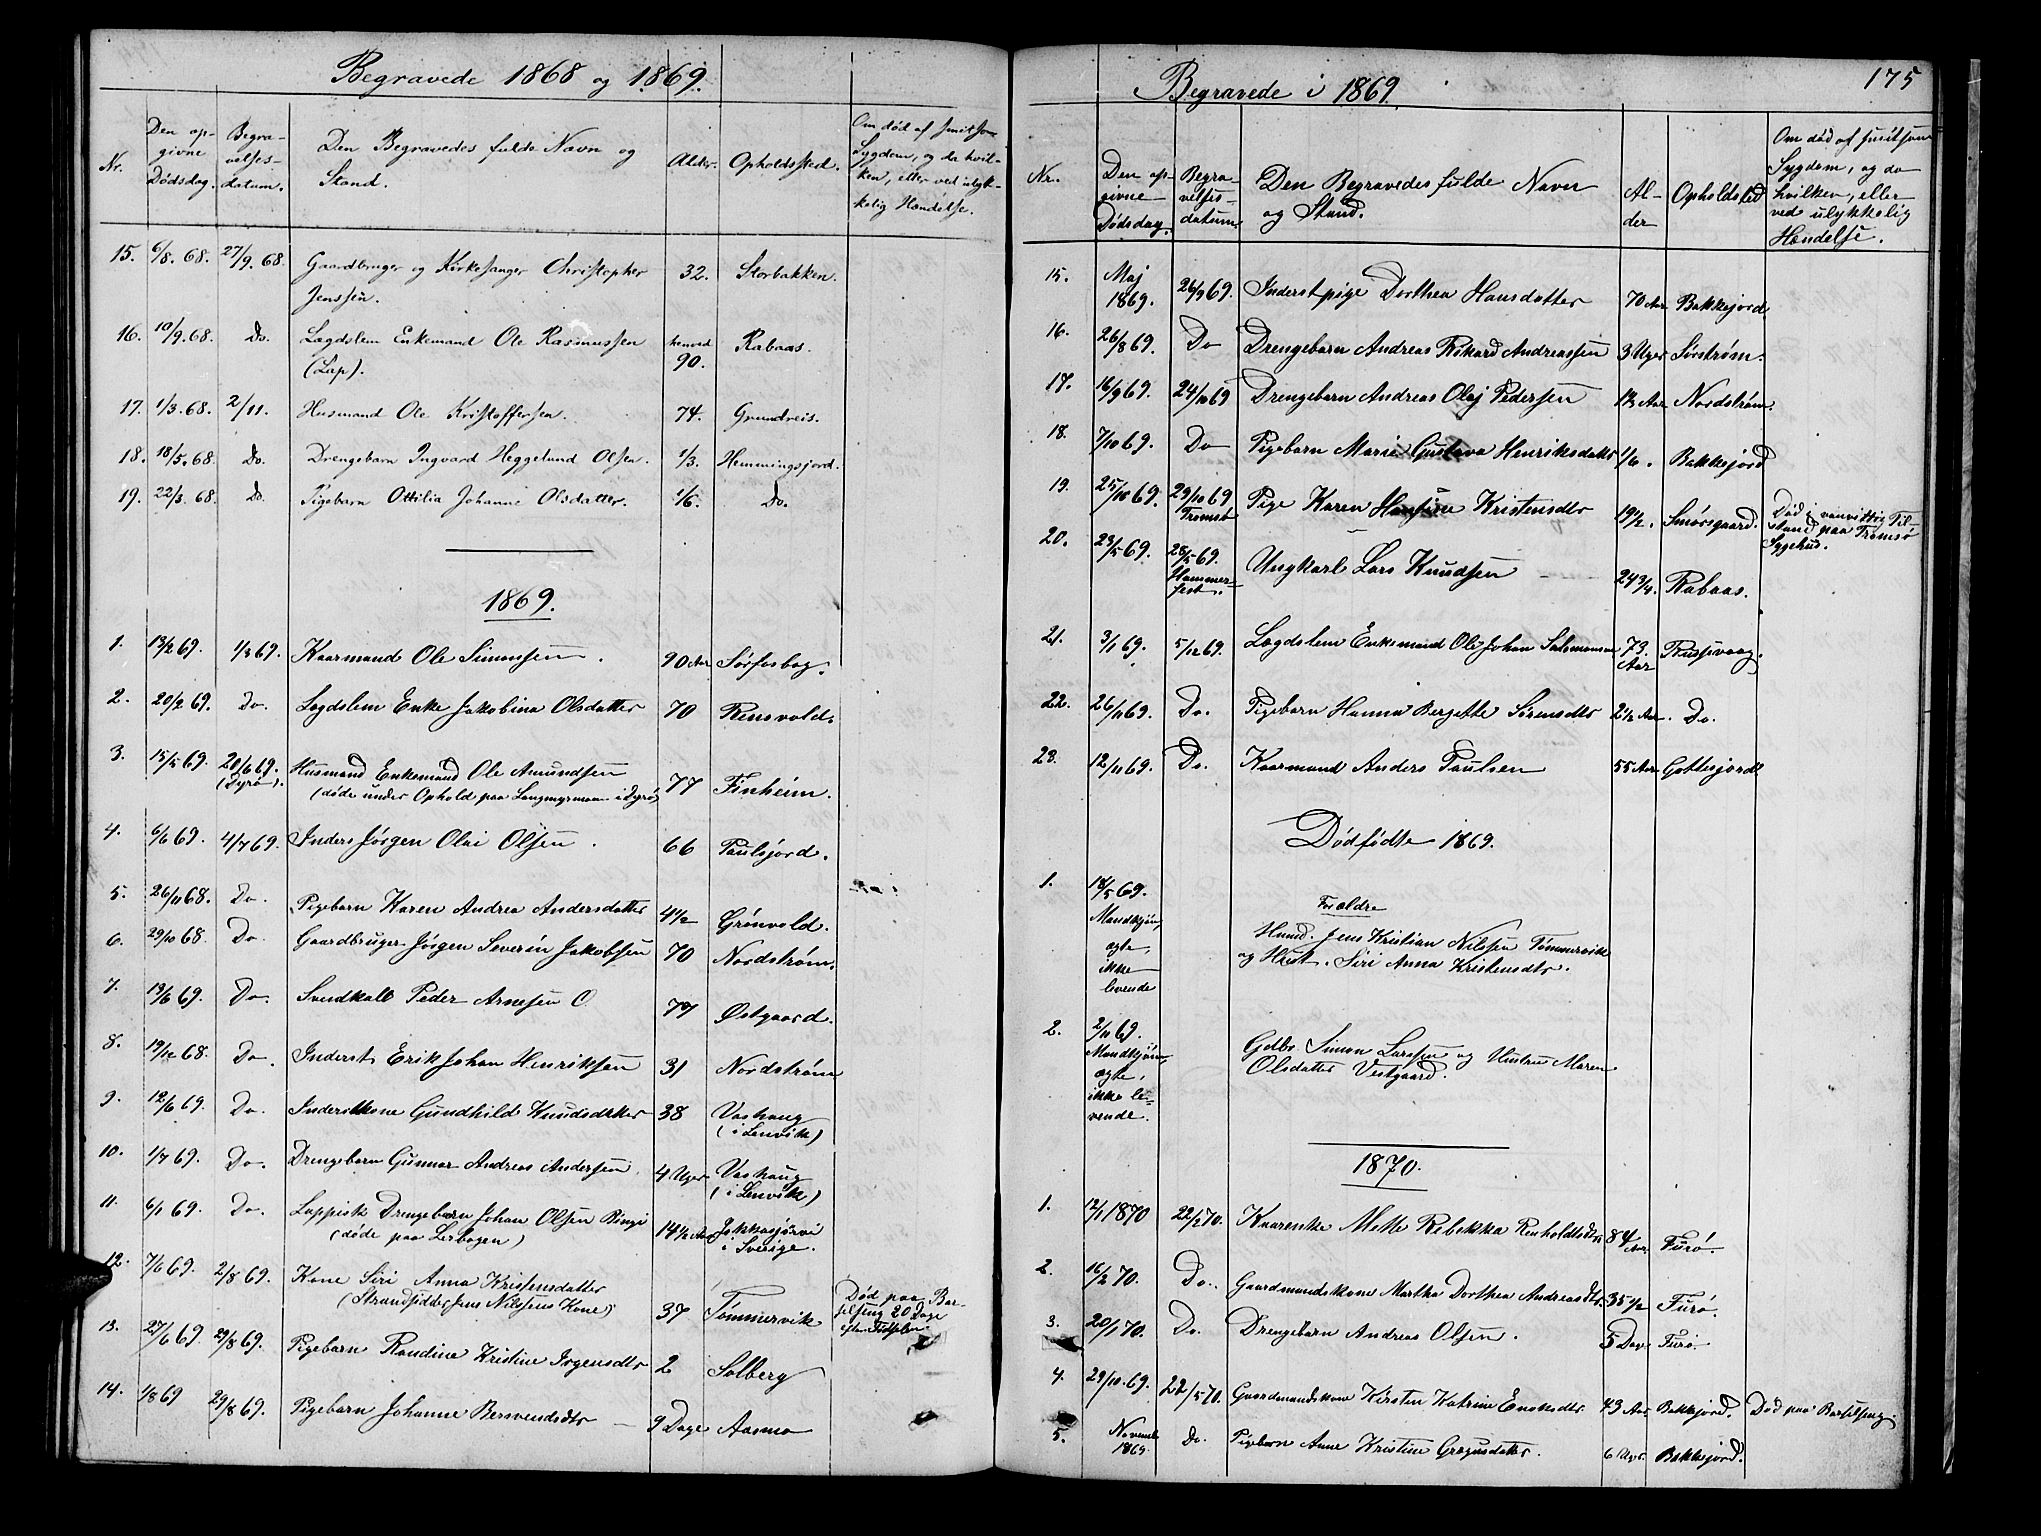 Begravede 1868 og 1869.
Nr.
Den opgivne Dødsdag.
Begravelsesdatum.
Den Begravedes fulde Navn og Stand.
Alder.
Opholdssted.
Om død af smitsom Sygdom, og da hvilken, eller ved ulykkelig Hændelse.
15. 6/8. 68. 27/9. 68. Gaardbruger og Kirkesanger Christopher Jenssen. 32. Storbakken.
16. 10/9. 68. Do. Lægdslem Enkemand Ole Rasmussen (Lap). henved 90. Rabaas.
17. 1/3. 68. 2/11. Husmand Ole Kristoffersen. 74. Grundreis.
18. 18/5. 68. Do. Drengebarn Ingvard Heggelund Olsen. 1/3. Hemmingsjord.
19. 22/3. 68. Do. Pigebarn Ottilia Johanne Olsdatter. 1/6. Do.
1869.
1. 13/2 69. 1/3 69. Kaarmand Ole Simonsen. 90 Aar Sørfosbog.
2. 20/2 69. Do. Lægdslem Enke Jakobina Olsdatter 70 Rensvold.
3. 15/5 69. 20/6 69. (Dyrø). Husmand Enkemand Ole Amundsen
(døde under Ophold paa Langmyrmoen i Dyrø) 77 Finheim.
4. 6/6 69. 4/7 69. Inders Jørgen Olai Olsen. 66 Paulsjord.
5. 26/11 68. Do. Pigebarn Karen Andrea Andersdatter 4 1/2 Grønvold.
6. 29/10 68. Do. Gaardbruger Jørgen Severin Jakobsen 70 Nordstrøm.
7. 13/6 69. Do. Svudkall Peder Arnesen 77 Østgaard.
8. 19/12 68. Do. Inderst Erik Johan Henriksen 31 Nordstrøm
9. 12/6 69. Do. Inderstkone Gundhild Knudsdatter 38 Vashaug (i Lenvik)
10. 1/7 69. Do. Drengebarn Gunnar Andreas Andersen 4 Uger Vashaug (i Lenvik)
11. 6/1 69. Do. Lappisk Drengebarn Johan Olsen Ringi
(døde paa Lerbogen) 14 1/2 Aar Jukkasjærvi i Sverige.
12. 7/6 69. 2/8 69. Kone Siri Anna Kristensdatter
(Strandsidder Jens Nilsens Kone) 37 Tømmervik Død paa Barselseng 20 Dage efter Fødselen.
13. 27/6 69. 29/8 69. Pigebarn Randine Kristine Irgensdtr 2 Solberg
14. 1/8 69 29/8 69. Pigebarn Johanne Bersvendsdtr 9 Dage Aasmo
Begravede i 1869.
175
Nr.
Den opgivne Dødsdag.
Begravelsesdatum.
Den Begravedes fulde Navn og Stand.
Alder
Opholdsted
Om død af smitsom Sygdom, og da hvilken, eller ved ulykkelig Hændelse.
15. Maj 1869. 26/9 69. Inderstpige Dorthea Hansdatter 70 Aar Bakkejord.
16. 26/8 69. Do Drengebarn Andreas Rikard Andreassen 3 Uger Sørstrøm.
17. 16/9 69. 24/10 69 Drengebarn Andreas Olaj Pedersen 1 1/2 Aar Nordstrøm.
18. 7/10 69. Do Pigebarn Marie Gustava Henriksdatr 1/6. Bakkejord
19. 25/10 69. 29/10 69 Tromsø Pige Karen Hansine Kristensdtr 19 1/2. Smørsgaard. Død i vanvittig Tilstand paa Tromsø Sygehus.
20. 23/5 69. 28/5 69. Hammerfest. Ungkarl Lars Knudsen 24 3/4. Rabaas.
21. 3/1 69. 5/12 69. Lægdslem Enkemand Ole Johan Salomonsen 73 Aar Russevaag.
22. 26/11 69. Do. Pigebarn Hanna Bergette Sørensdtr 2 1/2 Aar. Do.
23. 12/11 69. Do. Kaarmand Anders Paulsen 55 Aar Gottesjord.
Dødfødte 1869.
Forældre
1. 18/5 69. Mandkjøn, ægte, ikke levende
Husmd. Jens Kristian Nilsen Tømmervik
og Hust. Siri Anna Kristensdtr.
2. 2/11 69. Mandkjøn, ægte, ikke levende.
Gdbr. Simon Larssen og Hustru Maren
Olsdatter Vestgaard.
1870.
1. 12/1 1870 22/2 70. Kaarenke Mette Rebekka Renholdtsdtr 84 Aar Furø.
2. 16/2 70. Do. Gaardmandskone Martha Dorthea Andreasdtr 35 1/2 Furø.
3. 20/1 70. Do. Drengebarn Andreas Olsen. 5 Dage Furø.
4. 29/10. 69. 22/5 70. Gaardmandskone Kirsten Katrine Enoksdtr 43 Aar Bakkejord. Død paa Barselseng.
5. Novemb. 1869. Do. Pigebarn Anne Kristine Gregusdatter. 6 Uger. Bakkejord.